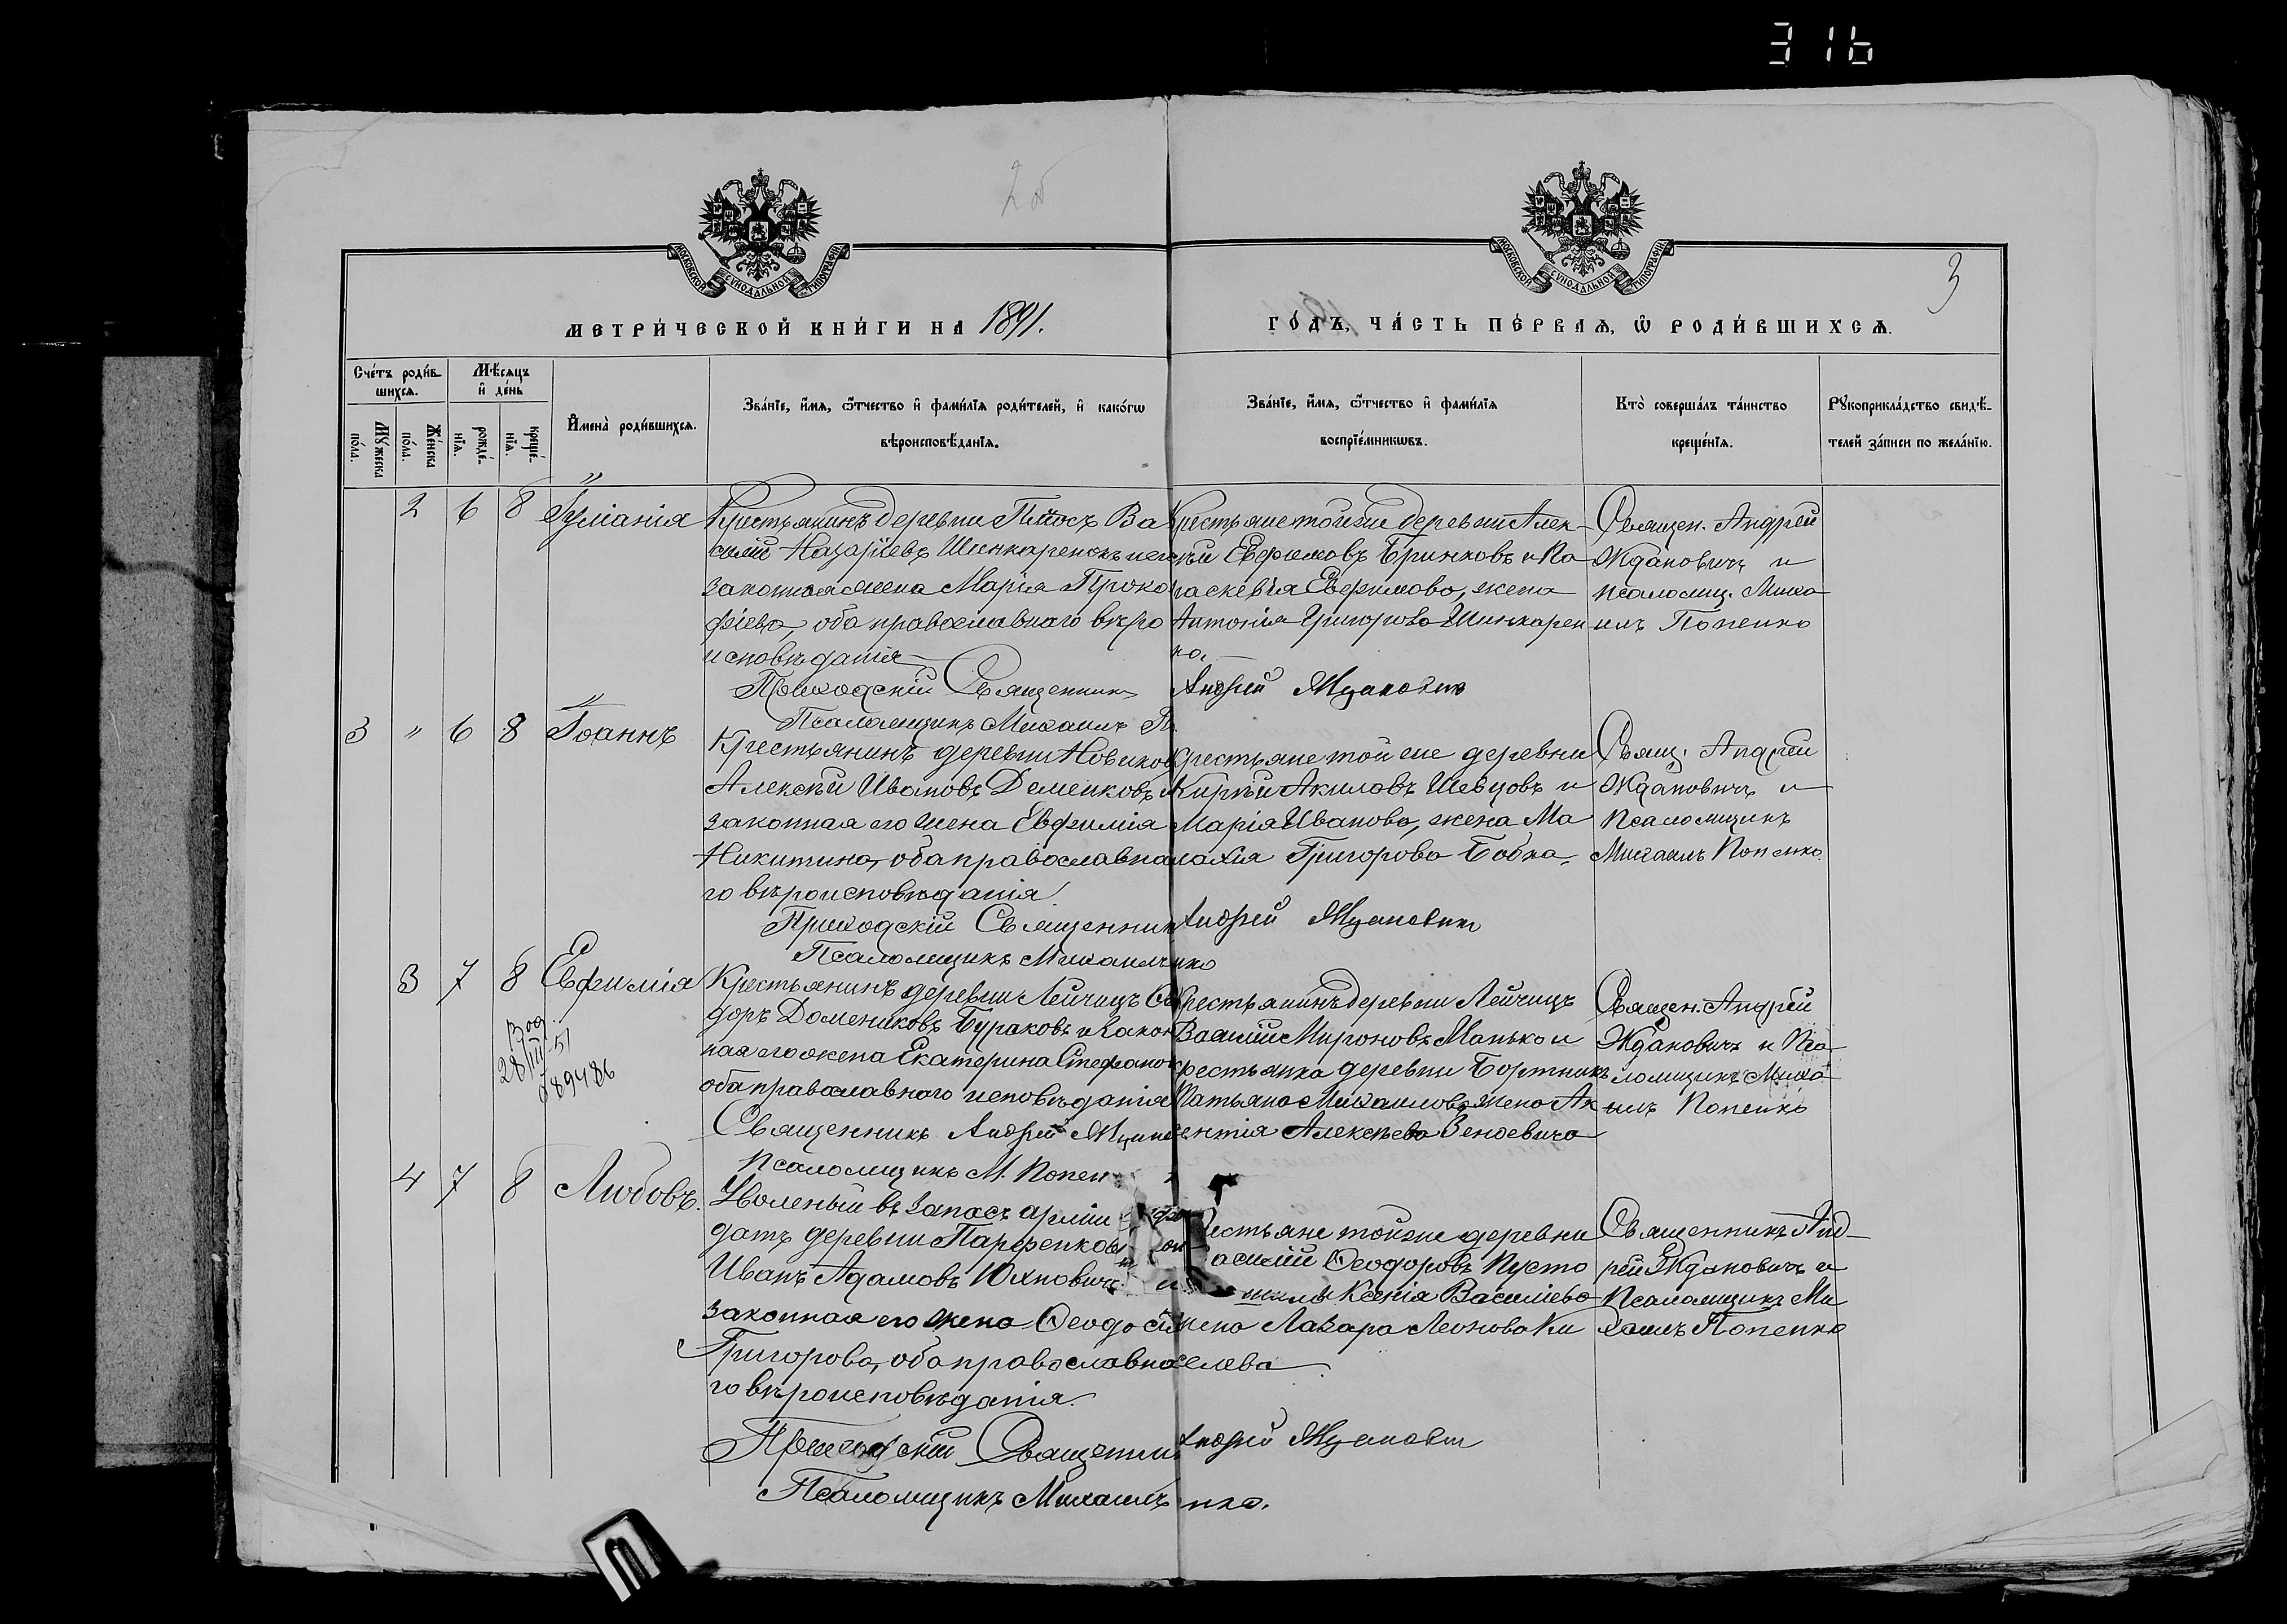 316
2об
3
МОСКОВСКОЙ СѴНОДАЛЬНОЙ ТИПОГРАФІИ
МОСКОВСКОЙ СѴНОДАЛЬНОЙ ТИПОГРАФІИ
МЕТРИ́ЧЕСКОЙ КНИ́ГИ НА 1891.
ГО́ДЪ, ЧА́СТЬ ПЕ́РВАѦ, Ѡ҆ РОДИ́ВШИХСѦ.
Сче́тъ роди́в-
шихсѧ.
Мѣ́сѧцъ
и҆ де́нь
Мꙋ́жеска
по́ла.
Же́нска
по́ла.
рожде́-
нїѧ.
креще́-
нїѧ.
И҆мена̀ роди́вшихсѧ.
Зва́нїе, и҆́мѧ, ѻ҆́тчество и҆ фами́лїѧ роди́телей, и҆ како́гѡ
вѣроисповѣ́данїѧ.
Зва́нїе, и҆́мѧ, ѻ҆́тчество и҆ фами́лїѧ
воспрїе́мникѡвъ.
Кто̀ соверша́лъ та́инство
креще́нїѧ.
Рꙋкоприкла́дство свидѣ́-
телей за́писи по жела́нїю.
" 2 6 8 Іуліанія
Крестьянинъ деревни Ва
силій Назаріевъ Шинкаренокъ и его
законная жена Марія Проко
фіева, оба православнаго вѣро
исповѣданія
Приходскій Священникъ
Псаломщикъ Михаилъ По
Крестьяне той же деревни Алек-
сѣй Евфимовъ Бринковъ и Па
раскевія Евфимова, жена
Антонія Григорова Шинкарен
ка.
Андрей Ждановичъ
Священ. Андрей
Ждановичъ и
псаломщ. Миха
илъ Попенко
3 " 6 8 Іоаннъ
Крестьянинъ деревни Новиков
Алексѣй Ивановъ Деменковъ и
законная его жена Евфимія
Никитина, оба православна
го вѣроисповѣданія.
Приходскій Священник
Псаломщикъ Михаилъ нко
Крестьяне той же деревни
Кирѣй Акиловъ Шевцовъ и
Марія Иванова, жена Ма
лахія Григорова Бобка.
Андрей Ждановичъ
Свящ. Андрей
Ждановичъ и
Псаломщикъ
Михаилъ Попенко.
3 7 8 Евфимія
28/III 51
Крестьянинъ деревни Лейчицъ Си
доръ Домениковъ Бураковъ и закон
ная его жена Екатерина Стефанов
оба православнаго исповѣданія
Священникъ Андрей Ждано
Псаломщикъ М. Попен
Крестьянинъ деревни Лейчицъ
Василій Мироновъ Манько и
крестьянка деревни Бортникъ
Татьяна Михаилова жена Ак
сентія Алексѣева Зеноевича
Священ. Андрей
Ждановичъ и Пса
ломщикъ Миха
илъ Попенко
4 7 8 Любовь.
Уволеный въ запасъ арміи
датъ деревни Парфенков
Иванъ Адамовъ Юхновичъ и
законная его жена Ѳеодосія
Григорова, оба православна
го вѣроисповѣданія.
Приходскій Священни
Псаломщикъ Михаилъ нко.
рестьяне той же деревни
асилій Ѳеодоровъ Пусто
Ксенія Василіева
жена Лазара Леонова Ки
селева.
Андрей Ждановичъ
Священникъ Анд-
рей Ждановичъ и
Псаломщикъ Ми
хаилъ Попенко